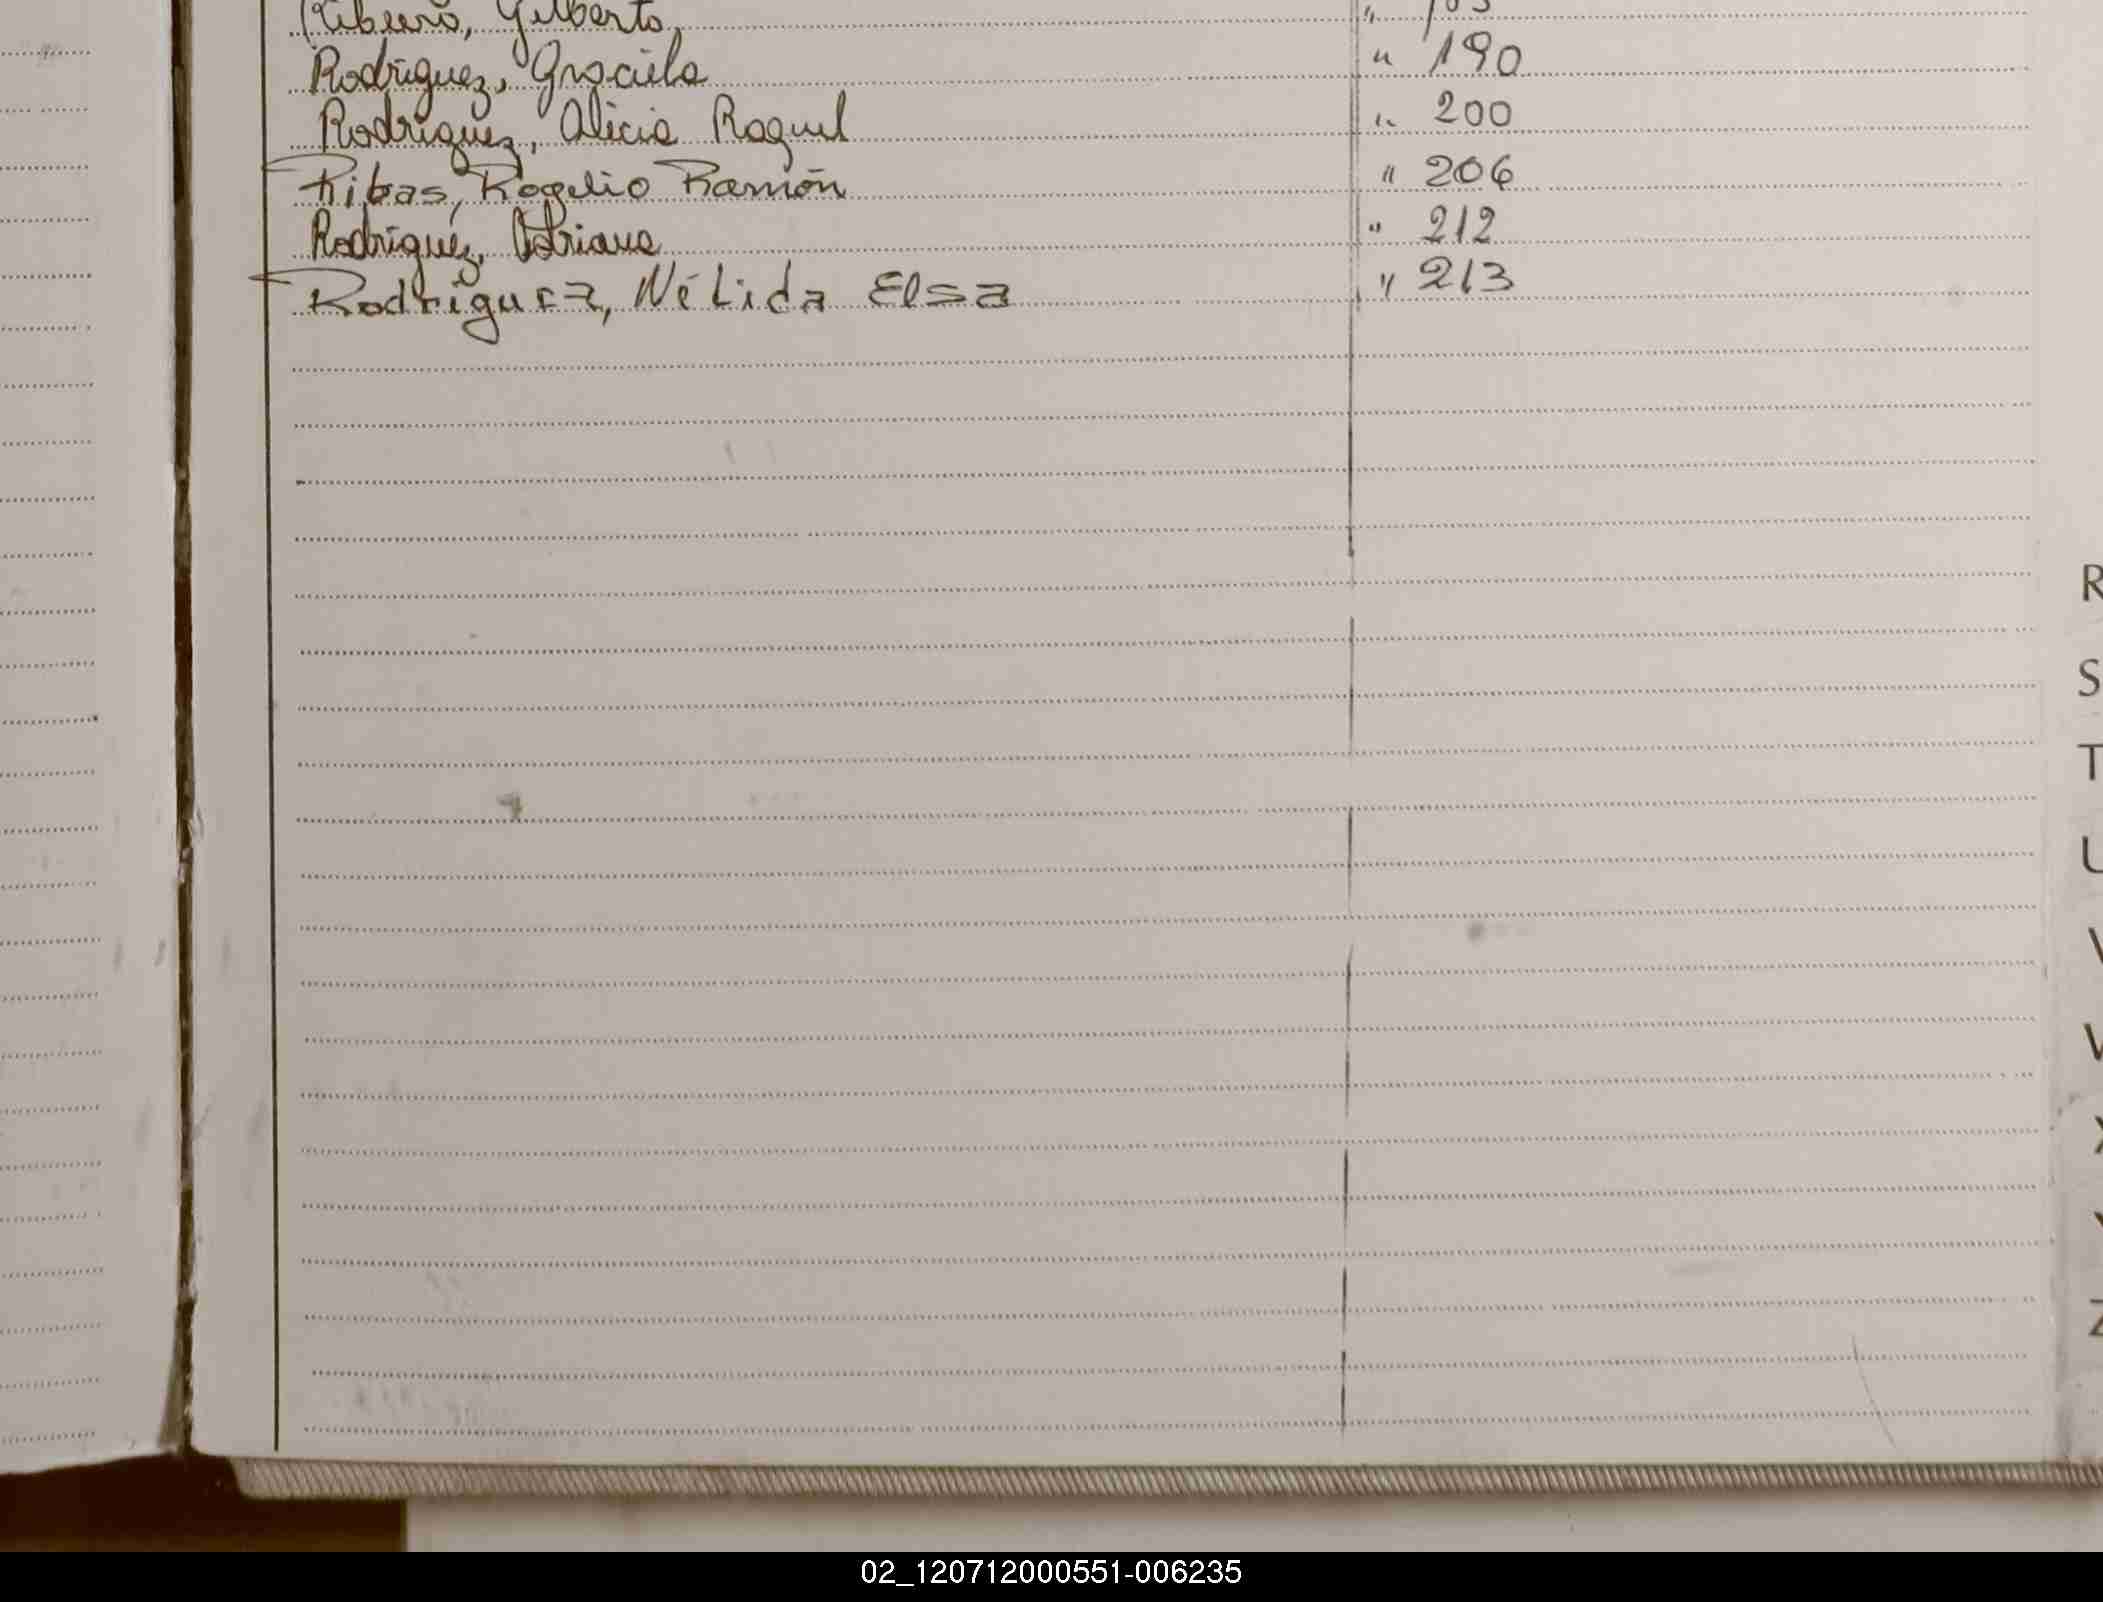 Ribeiro, Gilberto "
Rodriguez, Graciela " 190
Rodriguez, Alicia Raquel " 200
Ribas, Rogelio Ramón " 206
Rodriguez, Adriana " 212
Rodriguez, Nélida Elsa " 213
R
S
T
U
V
W
X
Y
Z
02_120712000551-006235